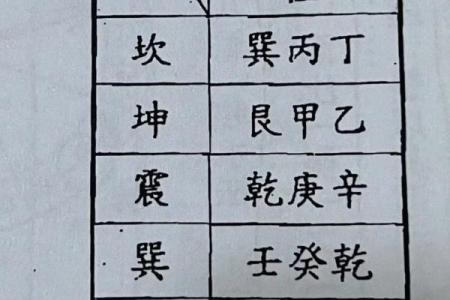 坎 巽丙丁
坤 艮甲乙
震 乾庚辛
巽 壬癸乾